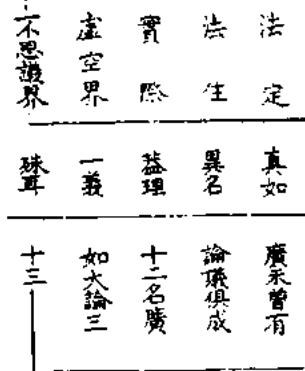 法定
法住
實際
虛空界
不思議界
真如
異名
葢理
一義
殊耳
廣未曾有
論議俱成
十二名廣
如大論三
十三